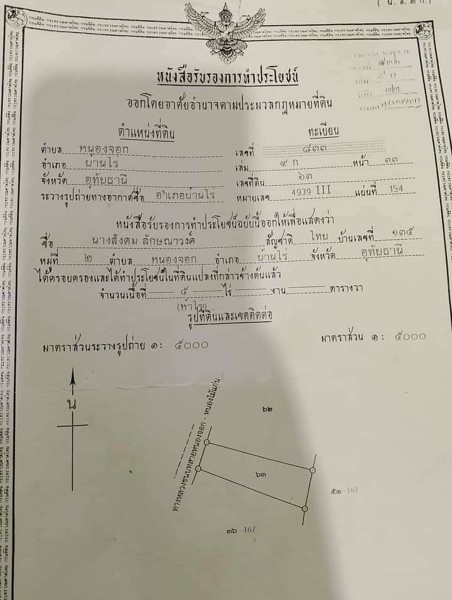 ( น.ส.๓ ก.)
หนังสือรับรองการทำประโยชน์
ออกโดยอาศัยอำนาจตามประมวลกฎหมายที่ดิน
ตำแหน่งที่ดิน ทะเบียน
ตำบล หนองจอก เลขที่ ๘๓๓
อำเภอ บ้านไร่ เล่ม ๙ ก หน้า ๓๓
จังหวัด อุทัยธานี เลขที่ดิน ๖๓
ระวางรูปถ่ายทางอากาศชื่อ อำเภอบ้านไร่ หมายเลข 4939 III แผ่นที่ 154
หนังสือรับรองการทำประโยชน์ฉบับนี้ออกให้เพื่อแสดงว่า
ชื่อ นางสังคม ลักษณาวงค์ สัญชาติ ไทย บ้านเลขที่ ๑๓๕
หมู่ที่ ๒ ตำบล หนองจอก อำเภอ บ้านไร่ จังหวัด อุทัยธานี
ได้ครอบครองและได้ทำประโยชน์ในที่ดินแปลงที่กล่าวข้างต้นแล้ว
จำนวนเนื้อที่ ๕ ไร่ งาน ตารางวา
(ห้าไร่)
รูปที่ดินและเขตติดต่อ
มาตราส่วนระวางรูปถ่าย ๑: ๕๐๐๐ มาตราส่วน ๑ : ๕๐๐๐
น
๖๒
ทางหลวงชนบทสายหนองจอก - หนองไม้แก่น
๖๓